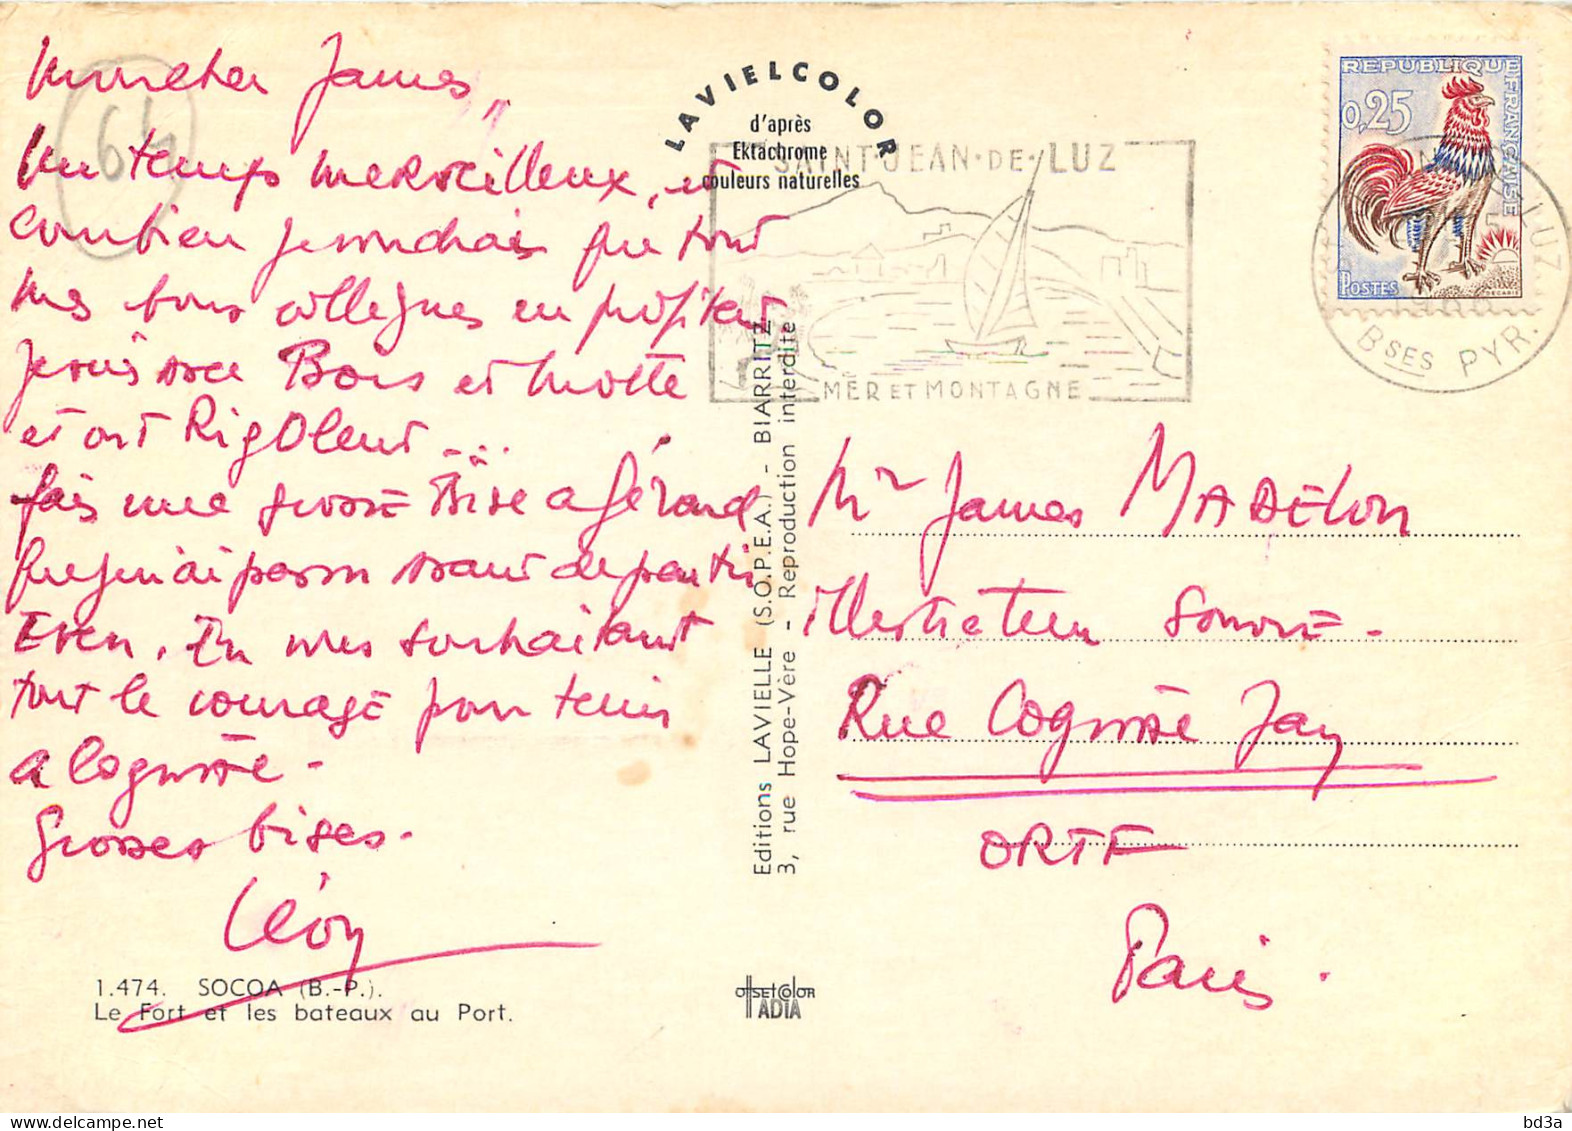 Mon cher James,
Un temps merveilleux, et
combien je voudrais que tous
mes bons collègues en profitent
je suis avec Bois et Motte
et ont RigOlent...
fais une grosse Bise a Gérard
que je n'ai pas vu avant de partir
Even. En vous souhaitant
tout le courage pour tenir
a Cognac-
Grosses bises.
Léon
1.474. SOCOA (B.-P.).
Le Fort et les bateaux au Port.
LAVIELCOLOR
d'après
Ektachrome
couleurs naturelles
Editions LAVIELLE (S.O.P.E.A.) - BIARRITZ
3, rue Hope-Vère - Reproduction interdite
OFFSETCOLOR
IADIA
SAINT·JEAN·DE·LUZ
MER ET MONTAGNE
REPUBLIQUE FRANÇAISE
0,25
POSTES
DECARIS
LUZ
BSES PYR.
64
Mr James MADELON
illustrateur sonore-
Rue Cognacq Jay
ORTF
Paris.
delcampe.net
bd3a